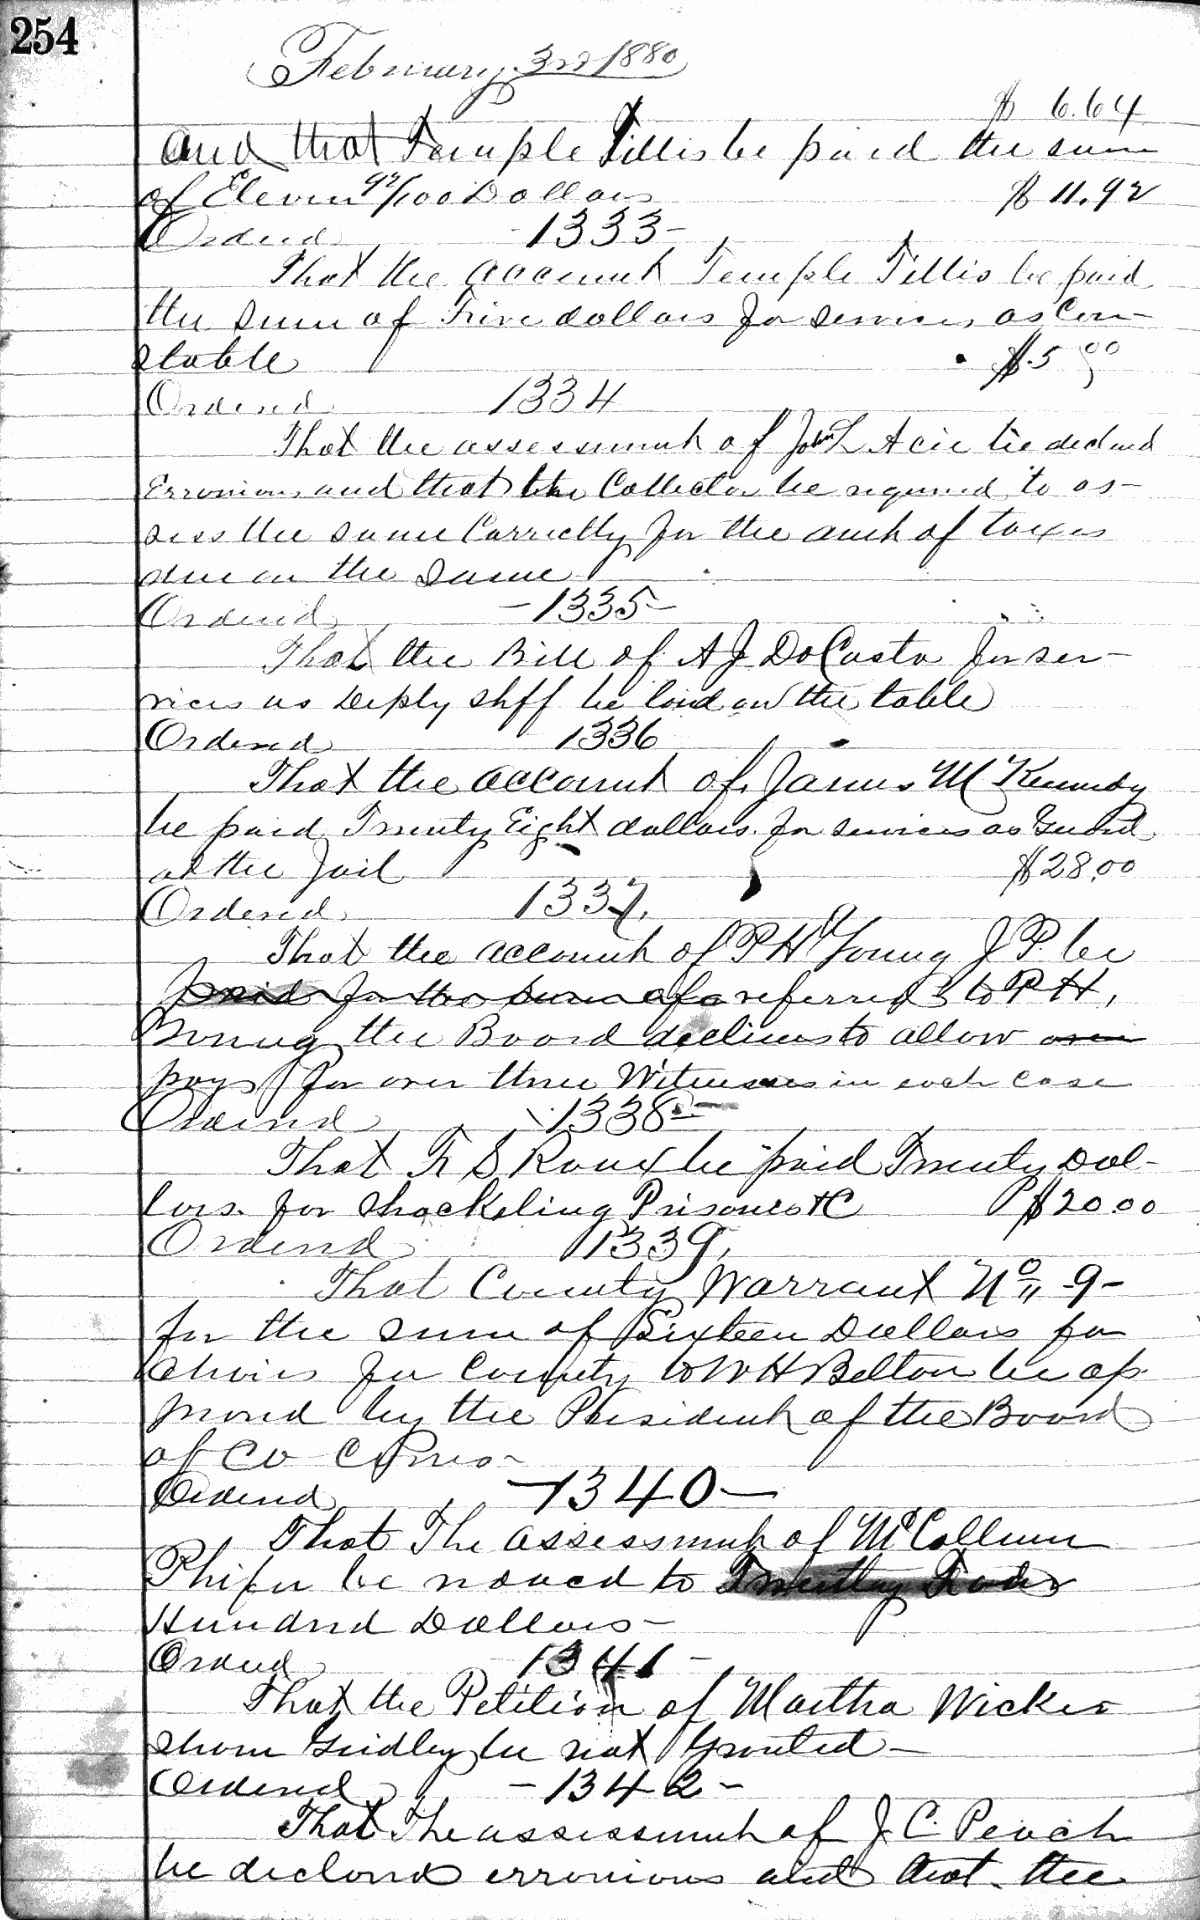 254
February 3rd 1880
$ 6.64
and that Temple Tillis be paid the sum
of Eleven 92/100 Dollars $ 11.92
Ordered 1333-
That the account Temple Tillis be paid
the sum of Five dollars for services as Con-
stable $.5 00
Ordered 1334
That the assessment of John L Acie be declared
Erronious and that the Collector be required to as-
sess the same Correctly for the amt of taxes
due on the same
Ordered -1335-
That the Bill of A J DaCosta for ser-
vices as Depty Shff be laid on the table
Ordered 1336
That the account of James McKennedy
be paid Twenty Eight dollars for services as Guard
at the Jail $28.00
Ordered 1337,
That the account of P H Young J P. be
paid for the sum of referred to P H,
Young the Board declines to allow over
pay for over three Witnesses in each case
Ordered 1338-
That F S Roux be paid Twenty Dol-
lars for Shackeling Prisoners &C $20.00
Ordered 1339,
That County Warrant No 9-
for the sum of Sixteen Dollars for
Chairs for County to W H Belton be ap
proved by the President of the Board
of Co Coms-
Ordered -1340-
That The assessment of McCollum
Phifer be reduced to Twenty Four
Hundred Dollars-
Ordered 1341-
That the Petition of Martha Wicker
Gridley be not Granted-
Ordered -1342-
That The assessment of J. C. Peach
be declared erronious and that the